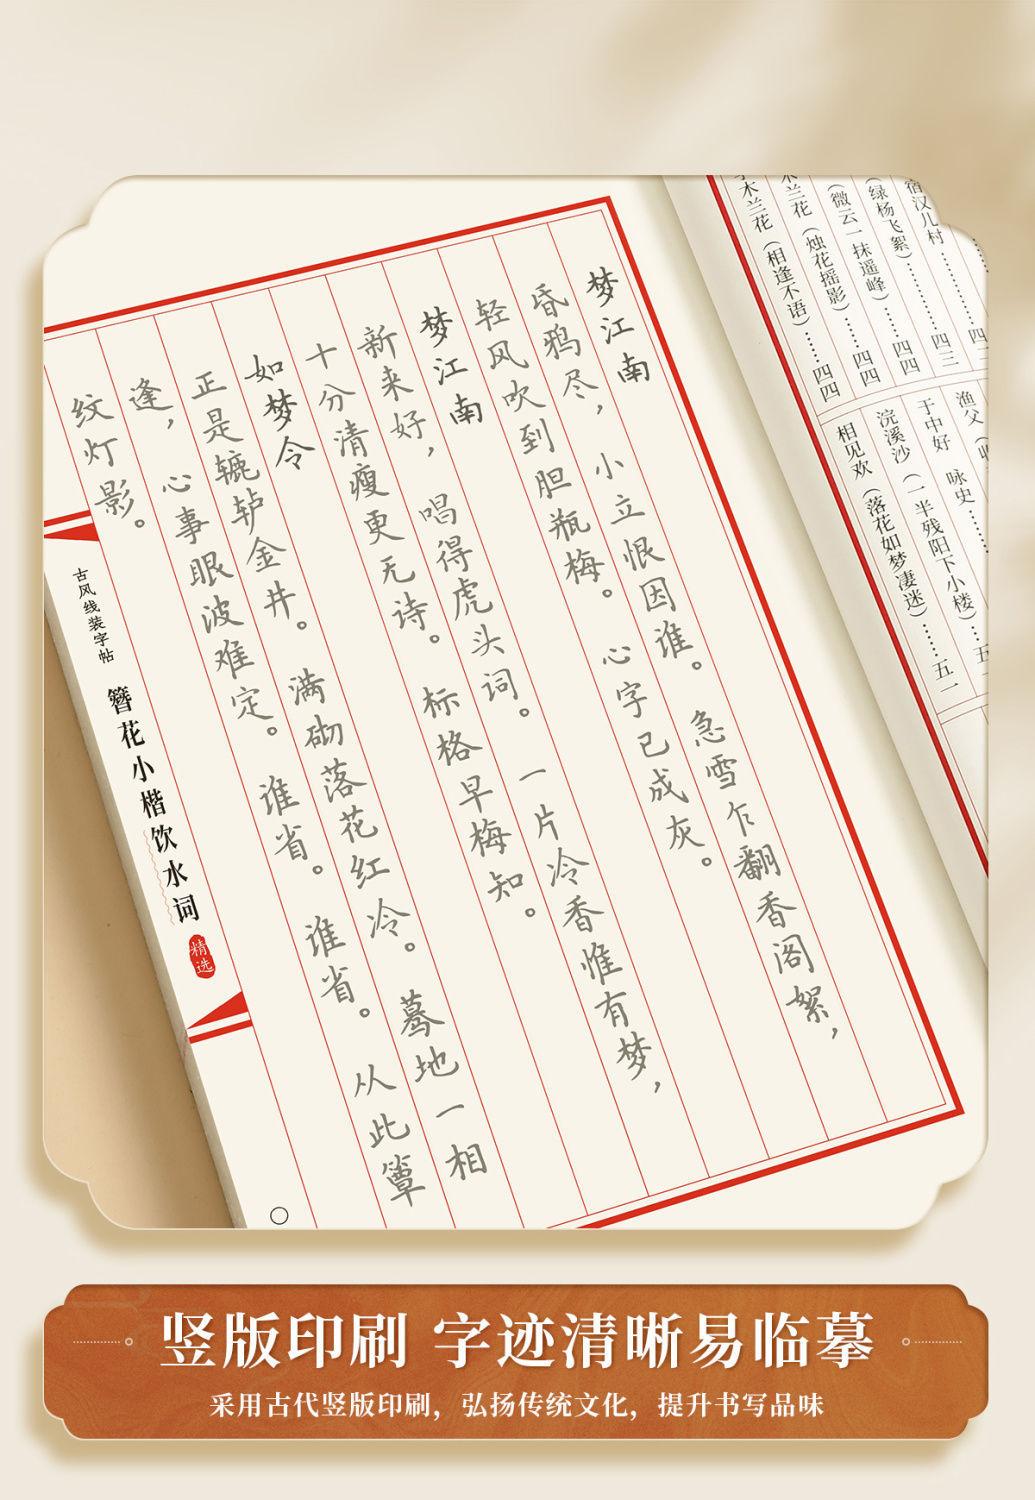 宿汉儿村
（绿杨飞絮）……四三
（微云一抹遥峰）……四四
木兰花（烛花摇影）……四四
木兰花（相逢不语）……四四
渔父（
于中好 咏史……
浣溪沙（一半残阳下小楼）…五
相见欢（落花如梦凄迷）……五一
梦江南
昏鸦尽，小立恨因谁。急雪乍翻香阁絮，
轻风吹到胆瓶梅。心字已成灰。
梦江南
新来好，唱得虎头词。一片冷香惟有梦，
十分清瘦更无诗。标格早梅知。
如梦令
正是辘轳金井。满砌落花红冷。蓦地一相
逢，心事眼波难定。谁省。谁省。从此簟
纹灯影。
古风线装字帖 簪花小楷饮水词 精选
竖版印刷 字迹清晰易临摹
采用古代竖版印刷，弘扬传统文化，提升书写品味